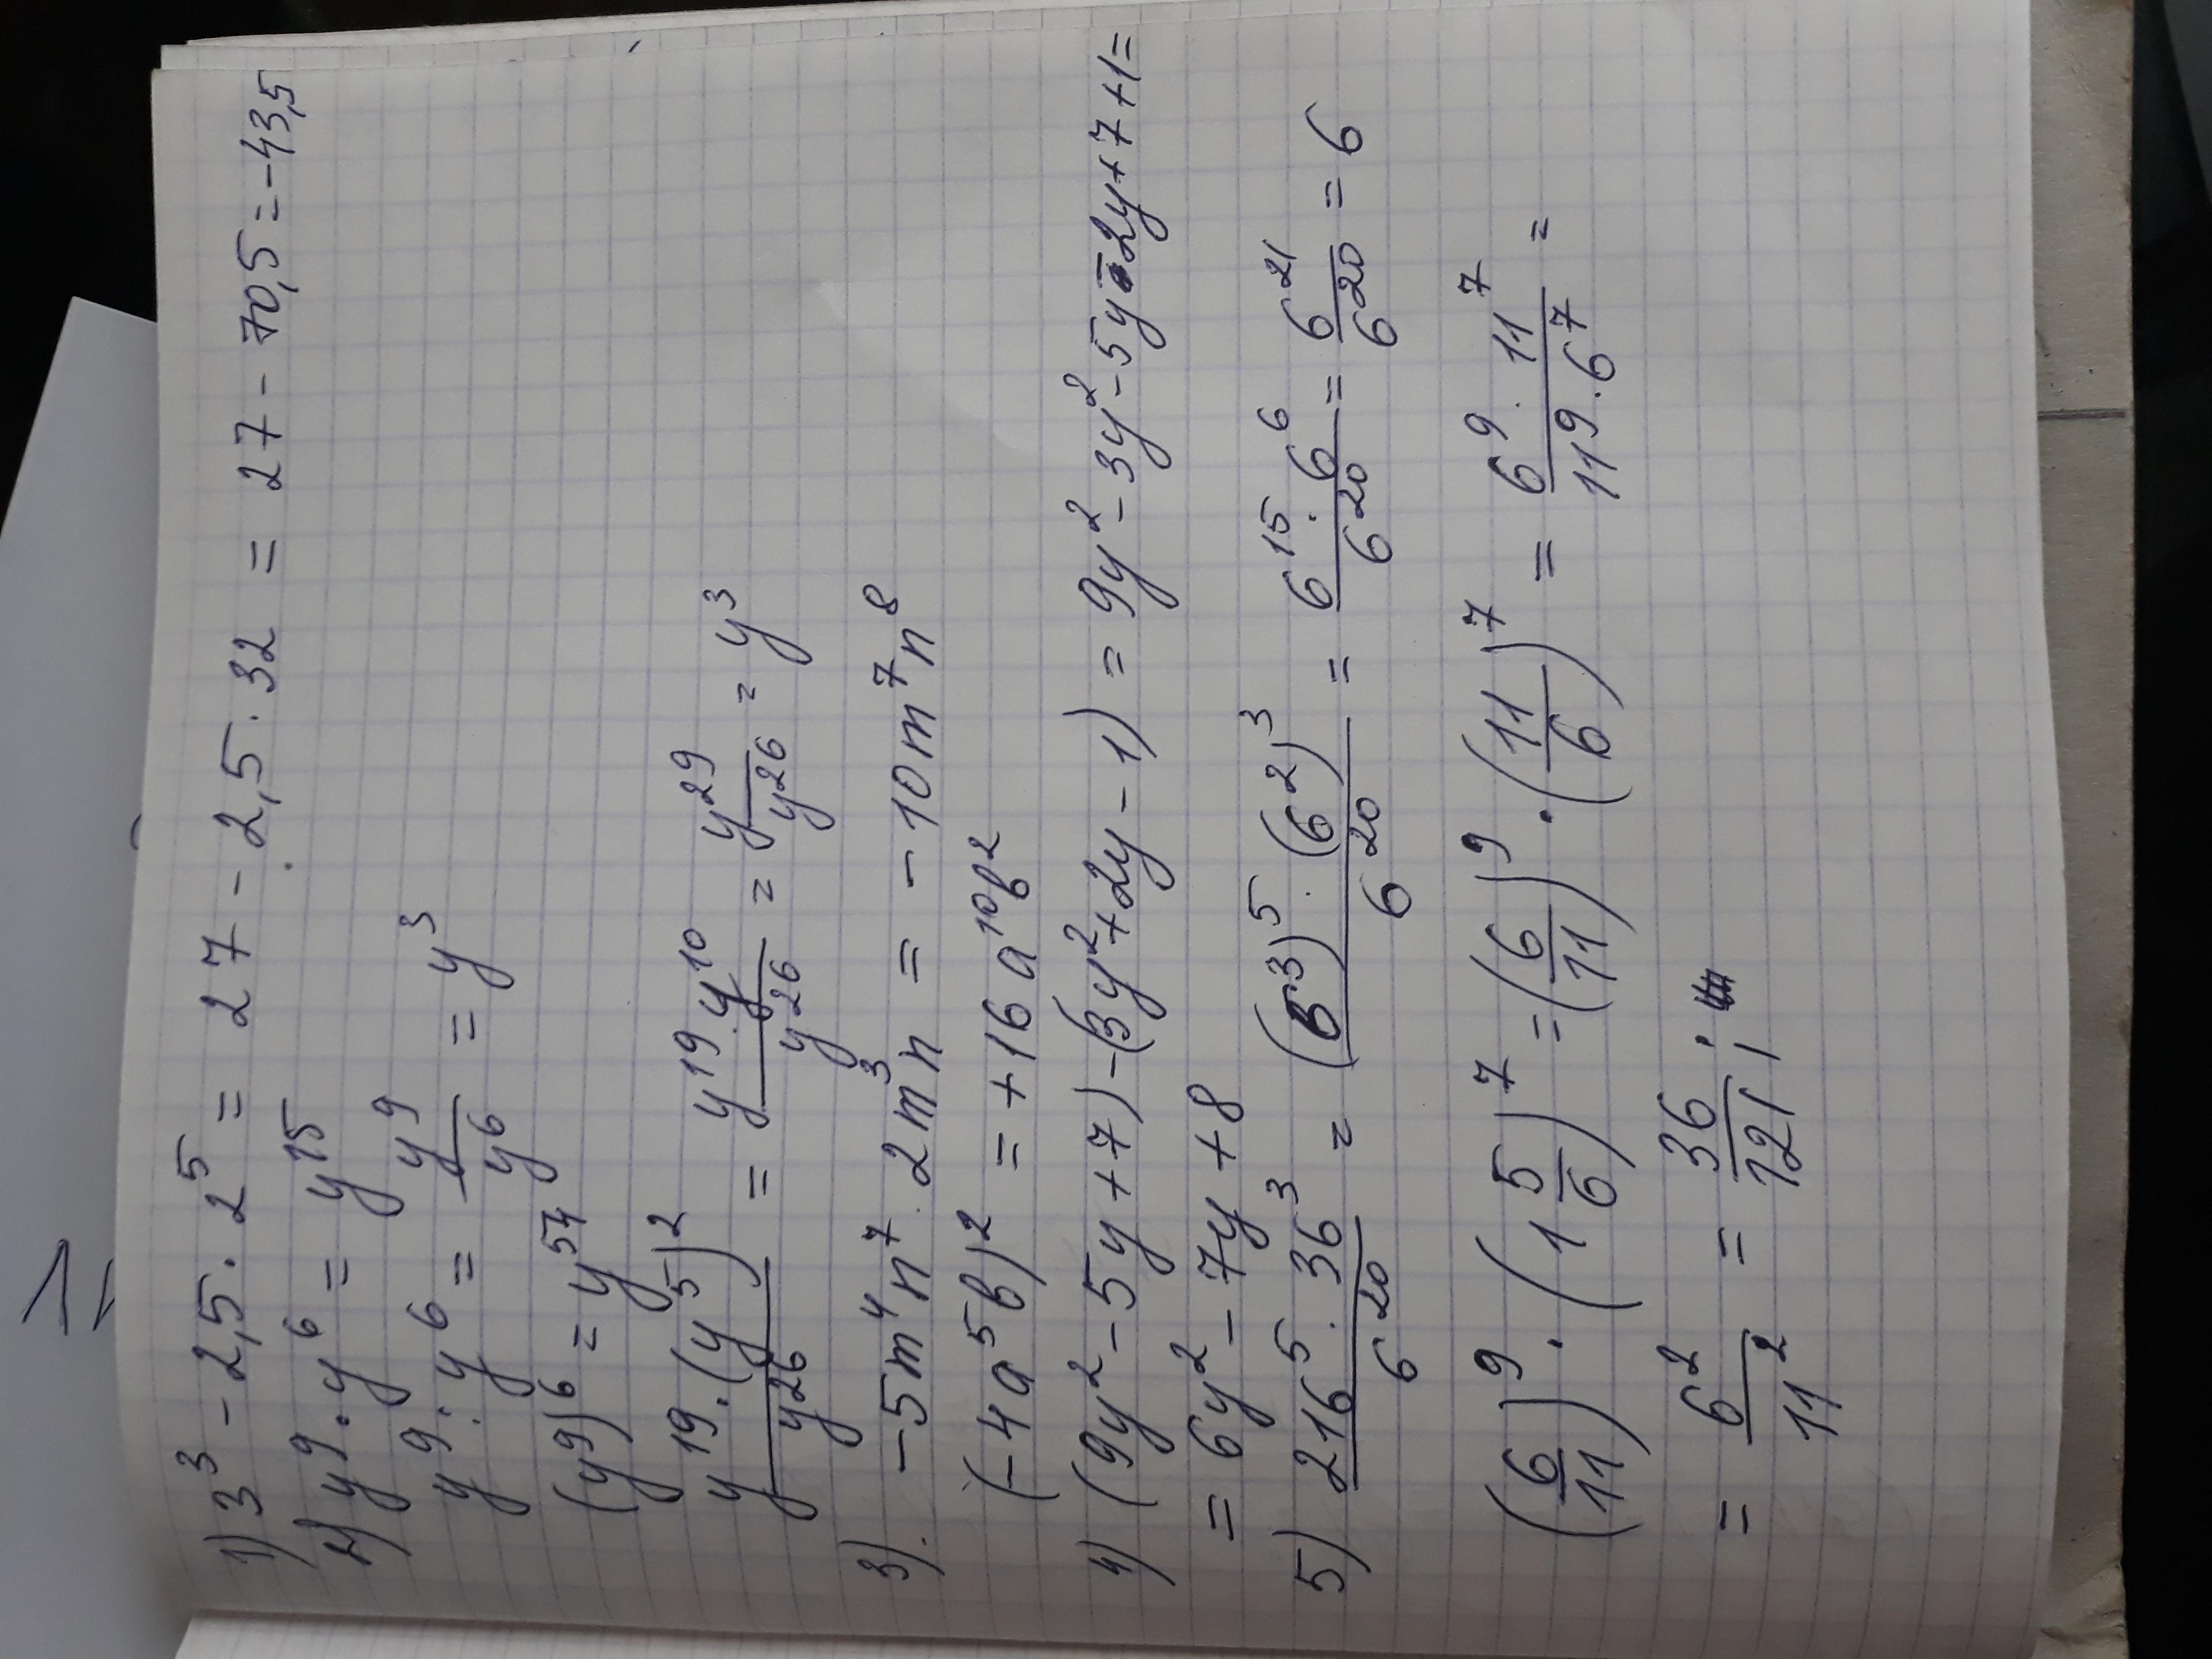 1) 3³ - 2,5 · 2⁵ = 27 - 2,5 · 32 = 27 - 70,5 = -43,5
2) y⁹ · y⁶ = y¹⁵
y⁹ : y⁶ = y⁹/y⁶ = y³
(y⁹)⁶ = y⁵⁴
y¹⁹ · (y⁵)²/y²⁶ = y¹⁹ · y¹⁰/y²⁶ = y²⁹/y²⁶ = y³
3). -5m⁴n⁷ · 2m³n = -10m⁷n⁸
(-4a⁵b)² = +16a¹⁰b²
4) (9y² - 5y + 7) - (3y² + 2y - 1) = 9y² - 3y² - 5y - 2y + 7 + 1 =
= 6y² - 7y + 8
5) 216⁵ · 36³/6²⁰ = (6³)⁵ · (6²)³/6²⁰ = 6¹⁵ · 6⁶/6²⁰ = 6²¹/6²⁰ = 6
(6/11)⁹ · (1 5/6)⁷ = (6/11)⁹ · (11/6)⁷ = 6⁹ · 11⁷/11⁹ · 6⁷ =
= 6²/11² = 36/121;